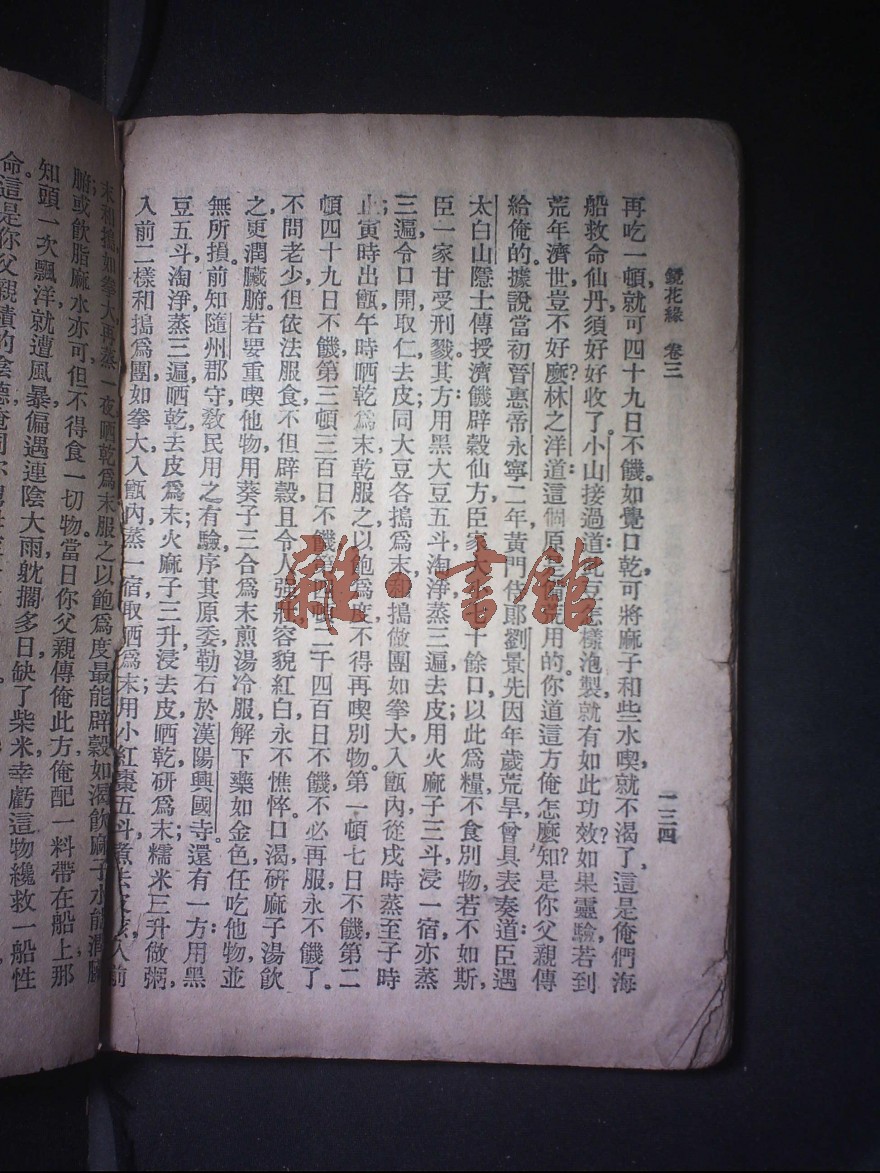 鏡花緣 卷三 一三四
再吃一頓,就可四十九日不饑。如覺口乾,可將麻子和些水喫,就不渴了,這是俺們海
船救命仙丹,須好好收了。小山接過道:此豆怎樣泡製,就有如此功效?如果靈驗,若到
荒年濟世,豈不好麽?林之洋道:這個原是備荒用的。你道這方俺怎麽知?是你父親傳
給俺的。據說當初晉惠帝永寧二年,黃門侍郎劉景先因年歲荒旱,曾具表奏道:臣遇
太白山隱士,傳授濟饑辟穀仙方,臣家大小七十餘口,以此爲糧,不食別物,若不如斯,
臣一家甘受刑戮。其方:用黑大豆五斗,淘淨,蒸三遍,去皮;用火麻子三斗,浸一宿,亦蒸
三遍,令口開,取仁去皮,同大豆各搗爲末,和搗做團,如拳大,入甑內,從戌時蒸至子時
止,寅時出甑,午時晒乾爲末,乾服之,以飽爲度,不得再喫別物。第一頓七日不饑,第二
頓四十九日不饑,第三頓三百日不饑,第四頓二千四百日不饑,不必再服,永不饑了。
不問老少,但依法服食,不但辟穀,且令人強壯,容貌紅白,永不憔悴。口渴,研麻子湯飲
之,更潤臟腑。若要重喫他物,用葵子三合爲末,煎湯冷服,解下藥如金色,任吃他物,並
無所損。前知隨州郡守教民用之有驗,序其原委,勒石於漢陽興國寺。還有一方:用黑
豆五斗,淘淨,蒸三遍,晒乾,去皮爲末;火麻子三升,浸去皮,晒乾,研爲末;糯米三升做粥,
入前二樣和搗爲團,如拳大,入甑內,蒸一宿,取晒爲末;用小紅棗五斗,煮去皮核,入前
末和搗,如拳大,再蒸一夜,晒乾爲末,服之以飽爲度,最能辟穀。如渴,飲麻子水,能潤臟
腑;或飲脂麻水亦可,但不得食一切物。當日你父親傳俺此方,俺配一料帶在船上,那
知頭一次飄洋,就遭風暴,偏遇連陰大雨,躭擱多日,缺了柴米,幸虧這物纔救一船性
命。這是你父親積的陰德
雜·書館